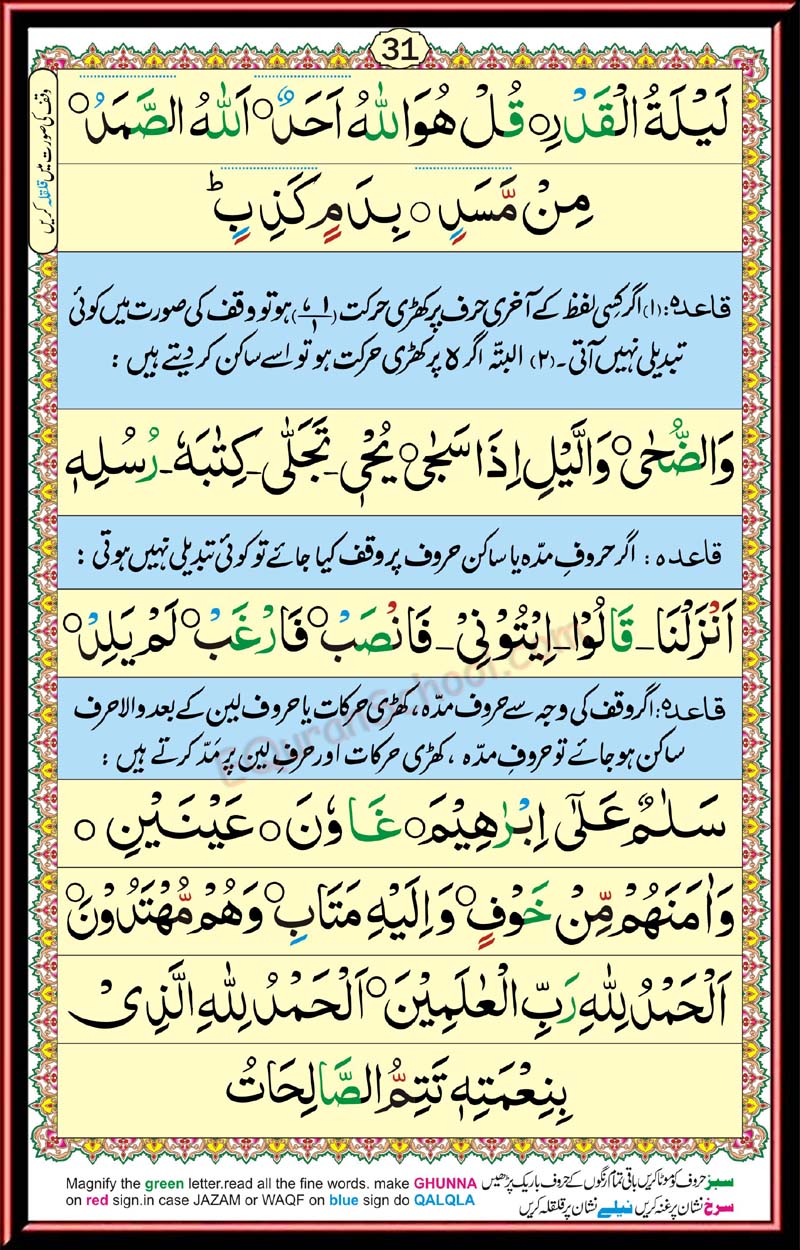 31
وقف کی صورت میں قلقلہ کریں
لَيْلَةُ الْقَدْرِ○ قُلْ هُوَ اللّٰهُ اَحَدٌ○ اَللّٰهُ الصَّمَدُ○
مِنْ مَّسَدٍ○ بِدَمٍ كَذِبٍ ؕ
قاعدہ: (۱) اگر کسی لفظ کے آخری حرف پر کھڑی حرکت ہو تو وقف کی صورت میں کوئی
تبدیلی نہیں آتی۔ (۲) البتہ اگر ہ پر کھڑی حرکت ہو تو اسے ساکن کر دیتے ہیں :
وَالضُّحٰى○ وَالَّيْلِ اِذَا سَجٰى○ يُحْيٖ۔ تَجَلّٰى۔ كِتٰبَهٗ۔ رُسُلِهٖ
قاعدہ : اگر حروفِ مدّہ یا ساکن حروف پر وقف کیا جائے تو کوئی تبدیلی نہیں ہوتی :
اَنْزَلْنَا۔ قَالُوْا۔ اِيْتُوْنِيْ۔ فَانْصَبْ○ فَارْغَبْ○ لَمْ يَلِدْ○
EQuranSchool.com
قاعدہ: اگر وقف کی وجہ سے حروف مدّہ، کھڑی حرکات یا حروف لین کے بعد والا حرف
ساکن ہو جائے تو حروفِ مدّہ ، کھڑی حرکات اور حرفِ لین پر مَدّ کرتے ہیں :
سَلٰمٌ عَلٰٓى اِبْرٰهِيْمَ○ غَاوٗنَ○ عَيْنَيْنِ○
وَاٰمَنَهُمْ مِّنْ خَوْفٍ○ وَاِلَيْهِ مَتَابِ○ وَهُمْ مُّهْتَدُوْنَ○
اَلْحَمْدُ لِلّٰهِ رَبِّ الْعٰلَمِيْنَ○ اَلْحَمْدُ لِلّٰهِ الَّذِيْ
بِنِعْمَتِهٖ تَتِمُّ الصَّالِحَاتُ
Magnify the green letter.read all the fine words. make GHUNNA
on red sign.in case JAZAM or WAQF on blue sign do QALQLA
سبز حروف کو موٹا کریں باقی تمام رنگوں کے حروف باریک پڑھیں
سرخ نشان پر غنہ کریں نیلے نشان پر قلقلہ کریں